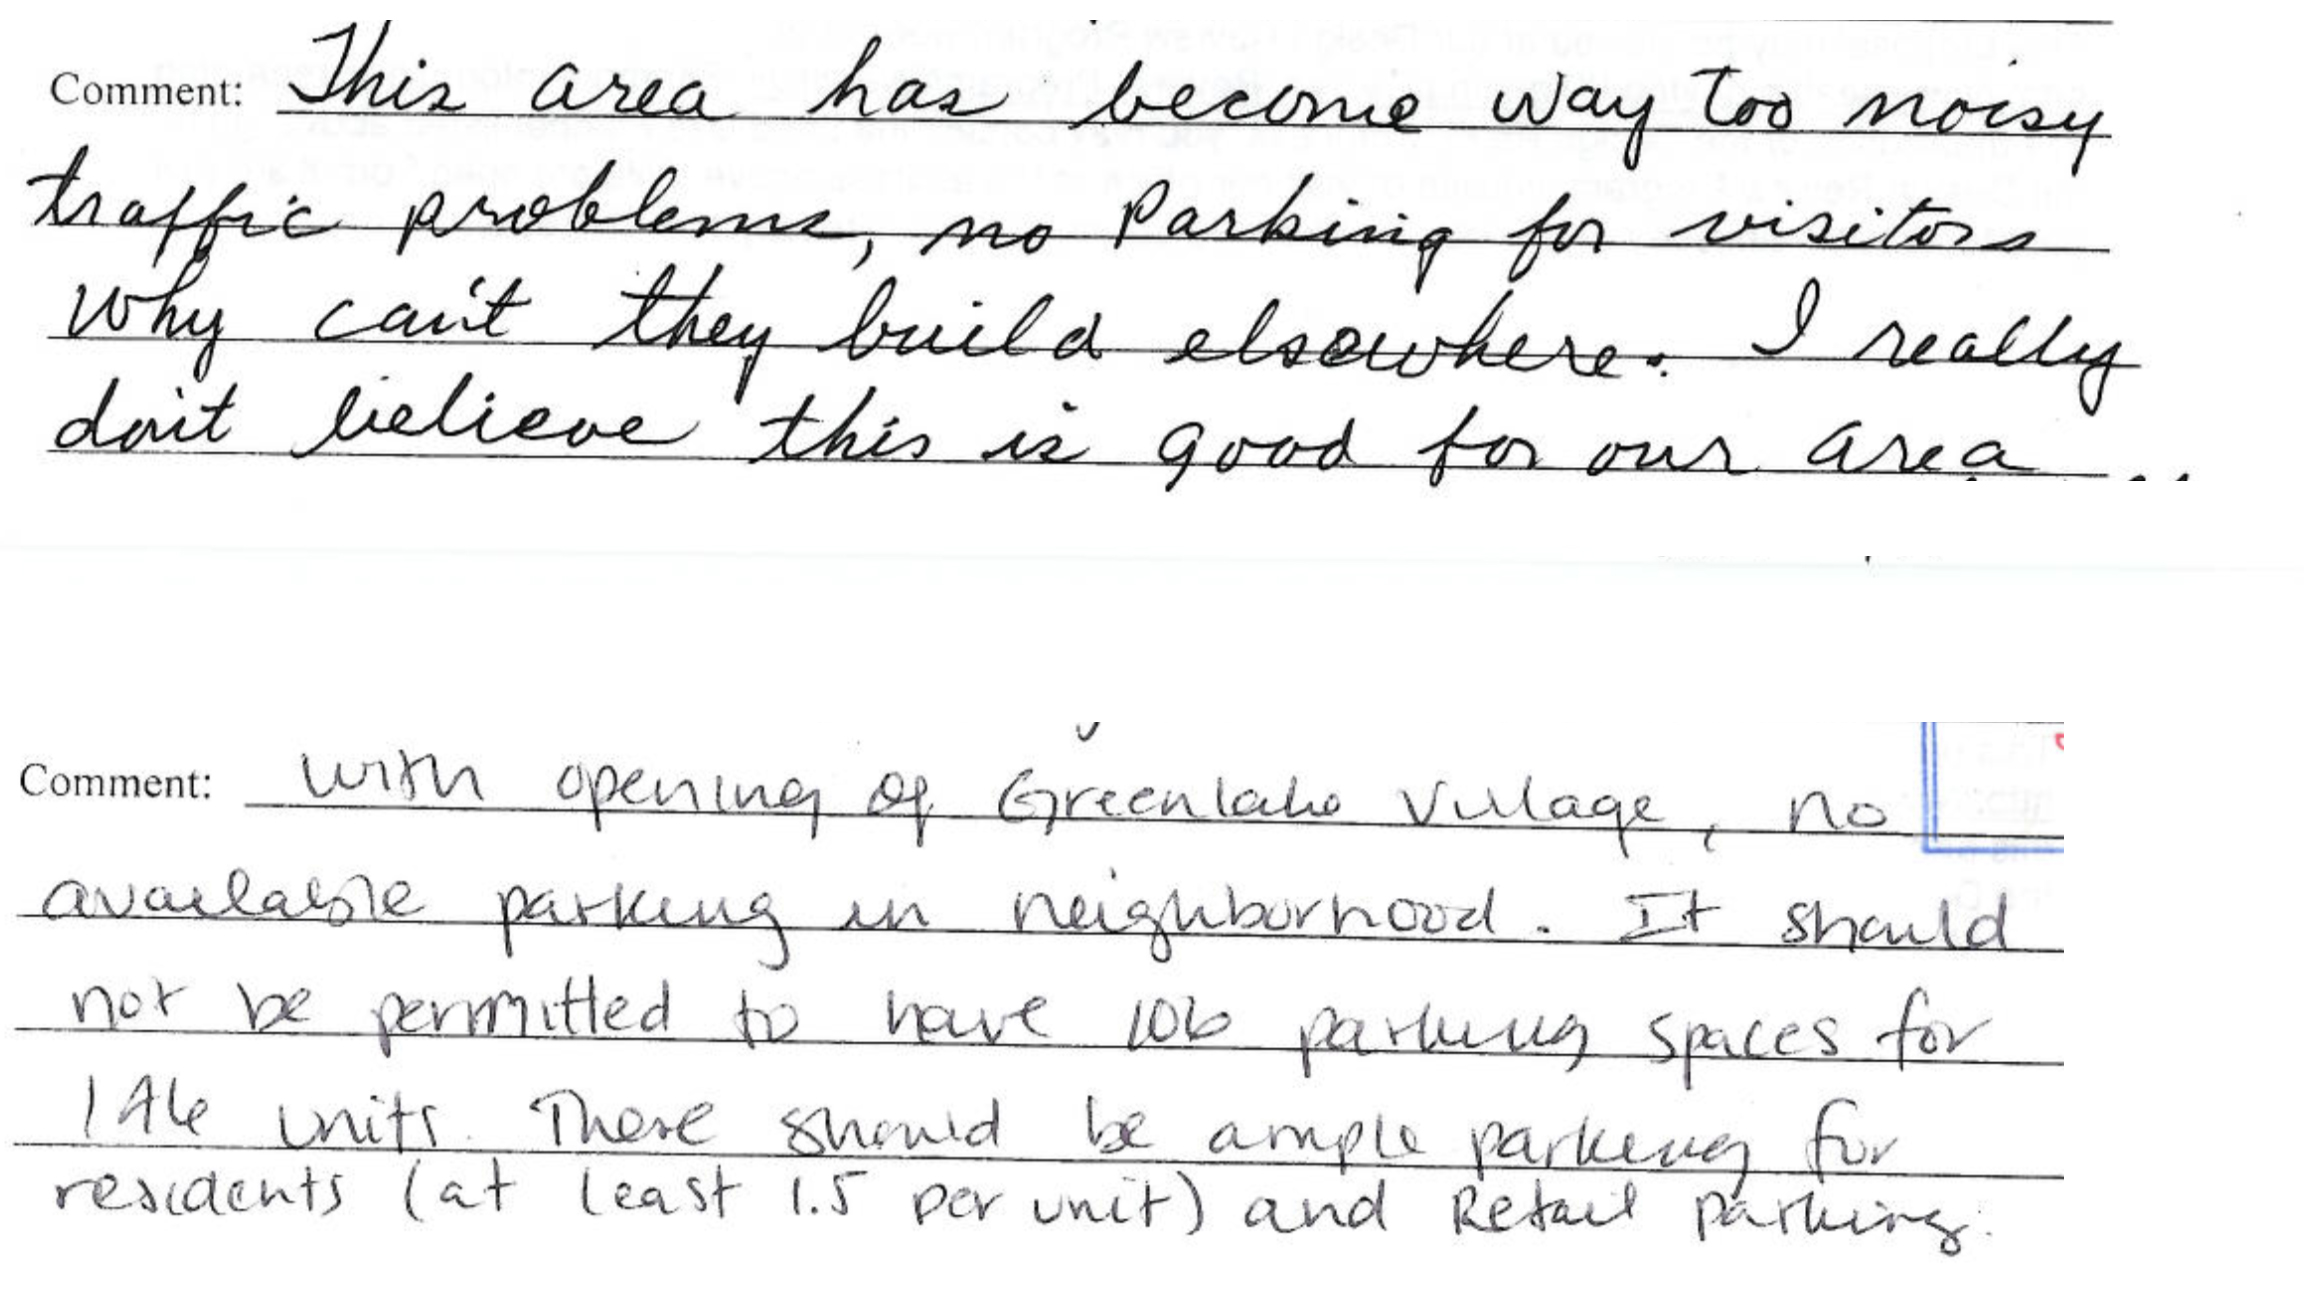 Comment: This area has become way too noisy
traffic problems, no Parking for visitors
Why can't they build elsewhere. I really
don't believe this is good for our area
Comment: With opening of Greenlake Village, no
available parking in neighborhood. It should
not be permitted to have 106 parking spaces for
146 units. There should be ample parking for
residents (at least 1.5 per unit) and Retail parking.